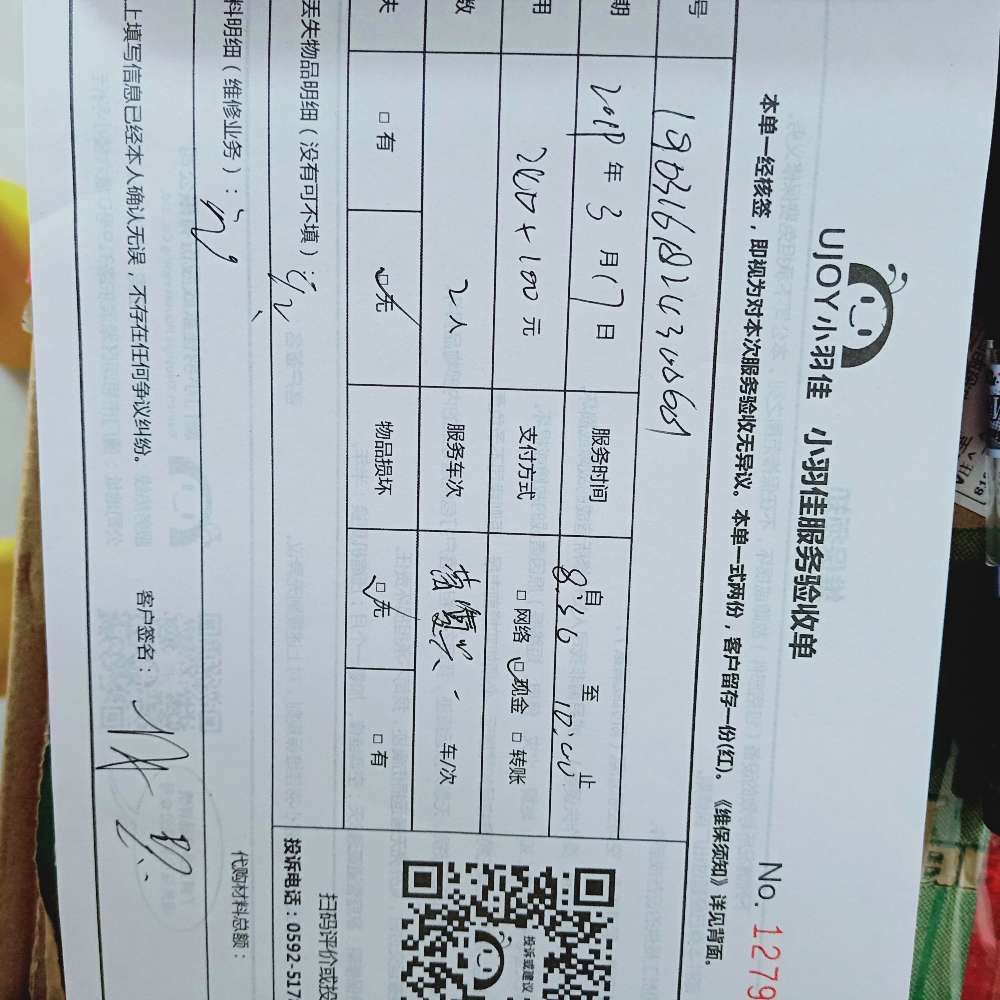 UJOY小羽佳 小羽佳服务验收单
No. 1279
本单一经核签，即视为对本次服务验收无异议。本单一式两份，客户留存一份(红)。《维保须知》详见背面。
号
期 2019年3月17日 服务时间 自8:36至10:00止
用 200+100元 支付方式 □网络 □现金 □转账
数 2人 服务车次 车/次
失 □有 □无 物品损坏 □无 □有
丢失物品明细（没有可不填）：
料明细（维修业务）： 代购材料总额：
上填写信息已经本人确认无误，不存在任何争议纠纷。 客户签名：
投诉或建议
扫码评价或投
投诉电话：0592-517